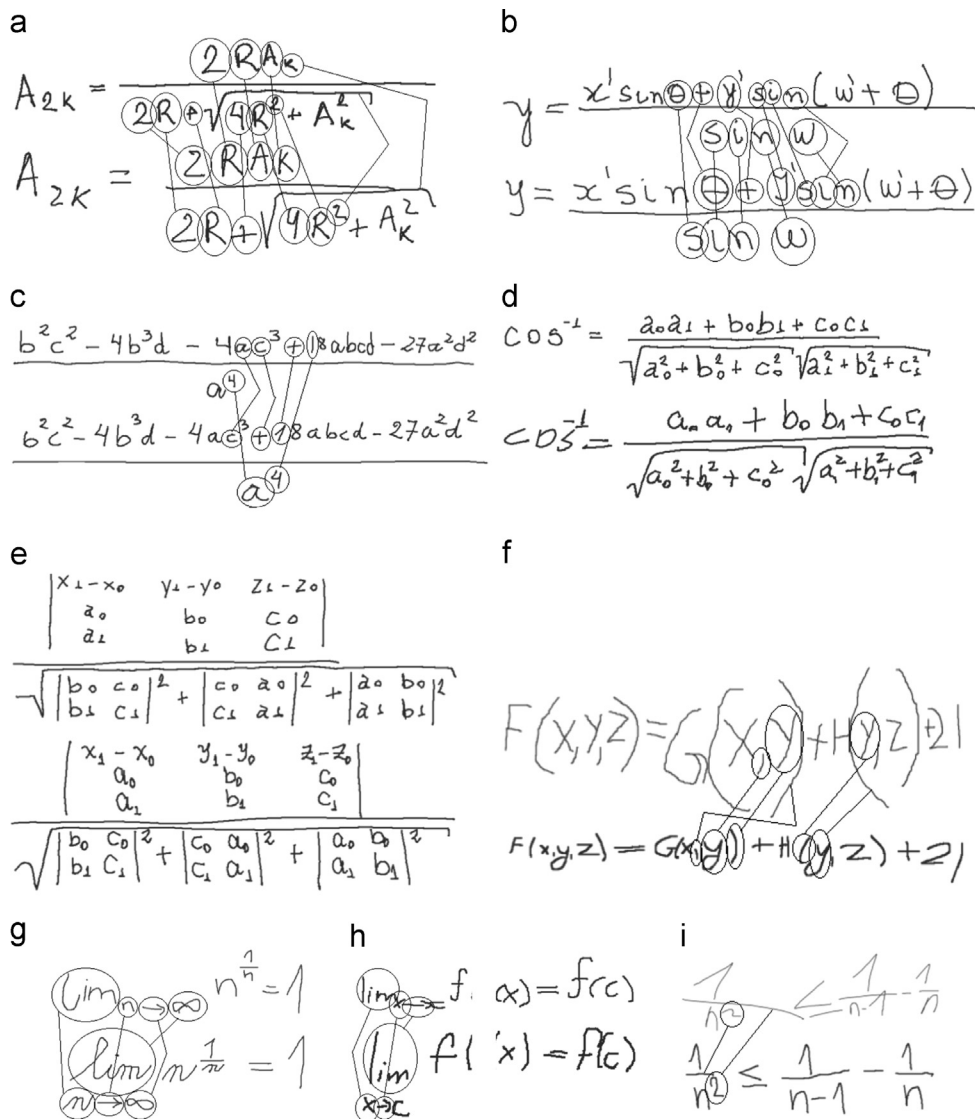 a
A_{2K} = \frac{2RA_K}{2R+\sqrt{4R^2+A_K^2}}
A_{2K} = \frac{2RAK}{2R+\sqrt{4R^2+A_K^2}}
b
y = \frac{x'sinθ+y'sin(w'+θ)}{sin w}
y = \frac{x'sinθ+y'sin(w'+θ)}{sin w}
c
\frac{b^2c^2-4b^3d-4ac^3+18abcd-27a^2d^2}{a^4}
\frac{b^2c^2-4b^3d-4ac^3+18abcd-27a^2d^2}{a^4}
d
cos^{-1} = \frac{a_0a_1+b_0b_1+c_0c_1}{\sqrt{a_0^2+b_0^2+c_0^2}\sqrt{a_1^2+b_1^2+c_1^2}}
cos^{-1} = \frac{a_0a_1+b_0b_1+c_0c_1}{\sqrt{a_0^2+b_0^2+c_0^2}\sqrt{a_1^2+b_1^2+c_1^2}}
e
|x_1-x_0 y_1-y_0 z_1-z_0|
|a_0 b_0 c_0|
|a_1 b_1 c_1|
\sqrt{|b_0 c_0; b_1 c_1|^2+|c_0 a_0; c_1 a_1|^2+|a_0 b_0; a_1 b_1|^2}
|x_1-x_0 y_1-y_0 z_1-z_0|
|a_0 b_0 c_0|
|a_1 b_1 c_1|
\sqrt{|b_0 c_0; b_1 c_1|^2+|c_0 a_0; c_1 a_1|^2+|a_0 b_0; a_1 b_1|^2}
f
F(x,y,z)=G(x,y)+H(y,z)+21
F(x,y,z)=G(x,y)+H(y,z)+21
g
lim n→∞ n^{\frac{1}{n}}=1
lim n^{\frac{1}{n}} = 1
n→∞
h
lim x→ f(x)=f(c)
lim f(x)=f(c)
x→c
i
\frac{1}{n^2} ≤ \frac{1}{n-1} - \frac{1}{n}
\frac{1}{n^2} ≤ \frac{1}{n-1} - \frac{1}{n}